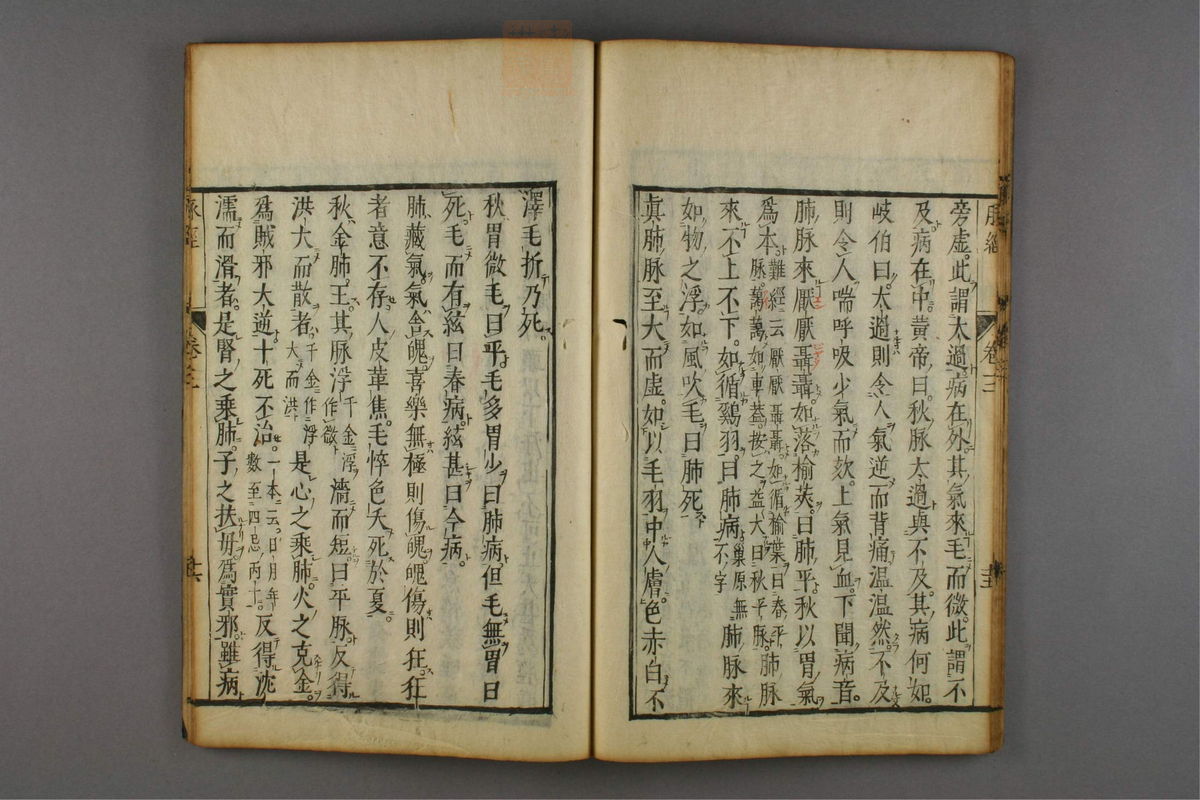 旁虛。此謂太過。病在外。其氣來毛而微。此謂不
及病在中。黃帝曰。秋脉太過與不及。其病何如。
岐伯曰。太過則令人氣逆而背痛溫溫然。不及
則令人喘呼吸少氣而欬。上氣見血。下聞病音。
肺脉來厭厭聶聶。如落榆莢。曰肺平。秋以胃氣
爲本。難經云厭厭聶聶如循榆葉曰春平脉。藹藹如車蓋。按之益大曰秋平脉。肺脉
來不上不下。如循鷄羽。曰肺病。巢原無不字肺脉來
如物之浮。如風吹毛。曰肺死。
眞肺脉至大而虛。如以毛羽中人膚。色赤白不
澤毛折乃死。
秋胃微毛曰平。毛多胃少曰肺病。但毛無胃曰
死。毛而有絃曰春病。絃甚曰今病。
肺藏氣。氣舍魄。喜樂無極則傷魄。魄傷則狂。狂
者意不存人。皮革焦。毛悴色夭。死於夏。
秋金肺。王。其脉浮千金浮作微濇而短。曰平脉。反得
洪大而散者。千金作浮大而洪是心之乘肺。火之克金。
爲賊邪大逆。十死不治。一本云。日月年數至四忌丙丁。反得沈
濡而滑者。是腎之乘肺。子之扶母。爲實邪。雖病
脉經
卷三